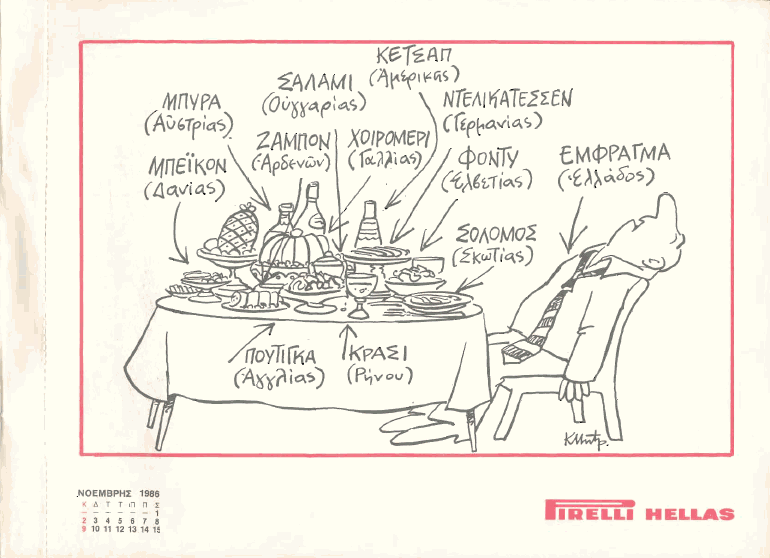 ΚΕΤΣΑΠ
(Ἀμερικῆς)
ΣΑΛΑΜΙ
(Οὑγγαρίας)
ΜΠΥΡΑ
(Αὐστρίας)
ΝΤΕΛΙΚΑΤΕΣΣΕΝ
(Γερμανίας)
ΖΑΜΠΟΝ
(Ἀρδενῶν)
ΧΟΙΡΟΜΕΡΙ
(Γαλλίας)
ΜΠΕΪΚΟΝ
(Δανίας)
ΦΟΝΤΥ
(Ἑλβετίας)
ΕΜΦΡΑΓΜΑ
(Ἑλλάδος)
ΣΟΛΟΜΟΣ
(Σκωτίας)
ΠΟΥΤΙΓΚΑ
(Ἀγγλίας)
ΚΡΑΣΙ
(Ρήνου)
ΚΜητρ.
ΝΟΕΜΒΡΗΣ 1986
Κ Δ Τ Τ Π Π Σ
– – – – – – 1
2 3 4 5 6 7 8
9 10 11 12 13 14 15
PIRELLI HELLAS